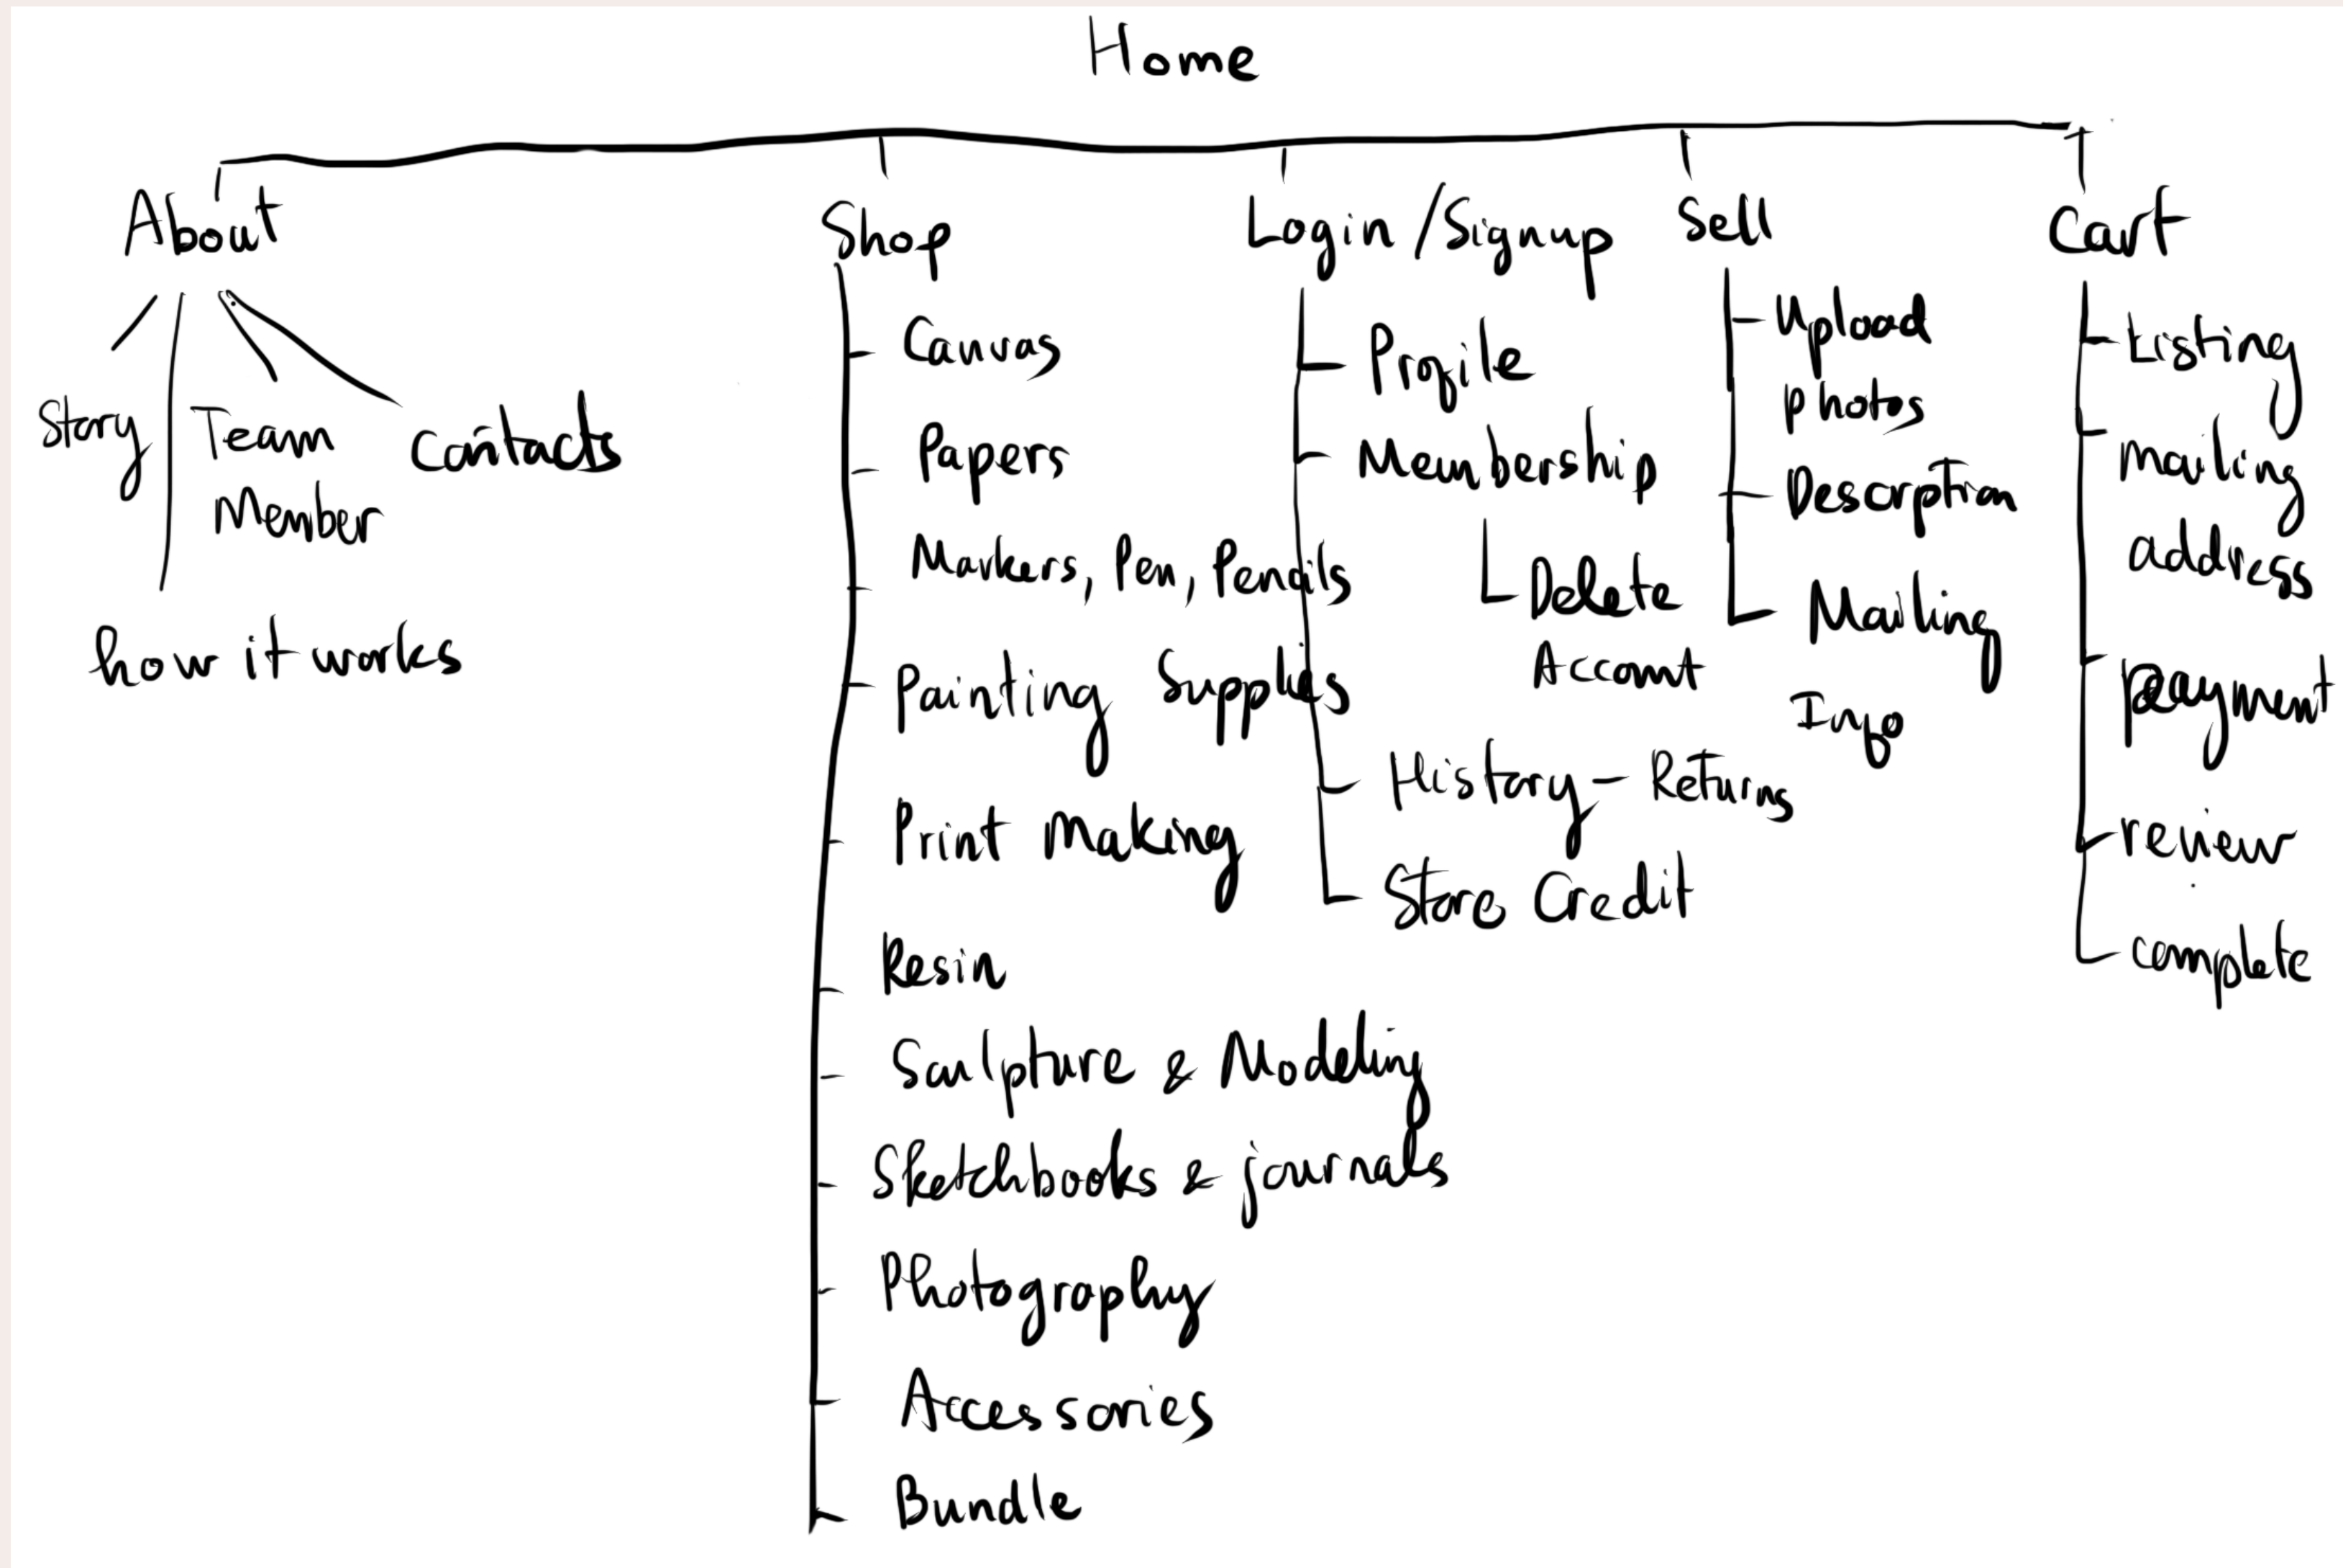 Home
About
Story
Team
Member
Contacts
how it works
Shop
Canvas
Papers
Markers, Pen, Pencils
Painting Supplies
Print Making
Resin
Sculpture & Modeling
Sketchbooks & journals
Photography
Accessories
Bundle
Login/Signup
Profile
Membership
Delete
Account
History - Returns
Store Credit
Sell
Upload
photos
Descrption
Mailing
Info
Cart
Listing
mailing
address
payment
review
complete